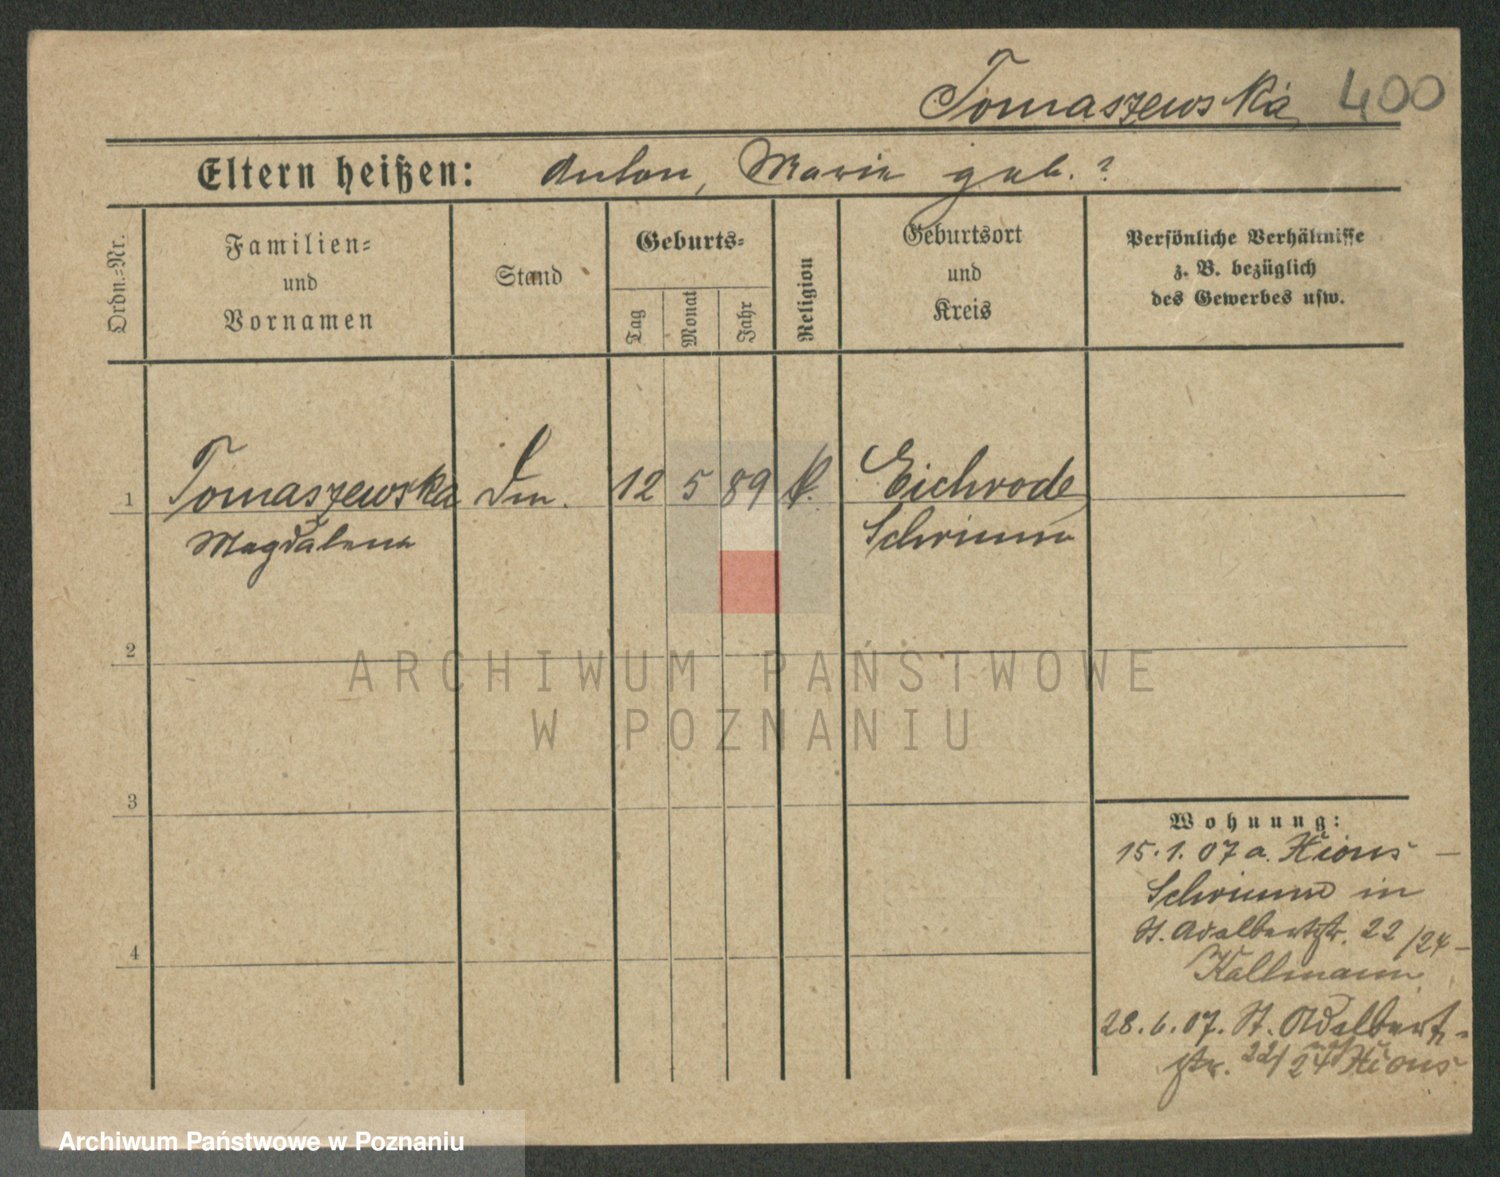 Tomaszewska 400
Eltern heißen: Anton, Marie geb. ?
Ordn.-Nr.
Familien-
und
Vornamen
Stand
Geburts-
Tag
Monat
Jahr
Religion
Geburtsort
und
Kreis
Persönliche Verhältnisse
z. B. bezüglich
des Gewerbes usw.
1 Tomaszewska 12 5 89 k. Eichrode
Magdalena Schrimm
2
3
4
Wohnung:
15.1.07 a. Xions -
Schrimm in
St. Adalbertstr. 22/24 -
Kallmann
28.6.07. St. Adalbert-
str. 22/24 n. Xions
ARCHIWUM PAŃSTWOWE
W POZNANIU
Archiwum Państwowe w Poznaniu